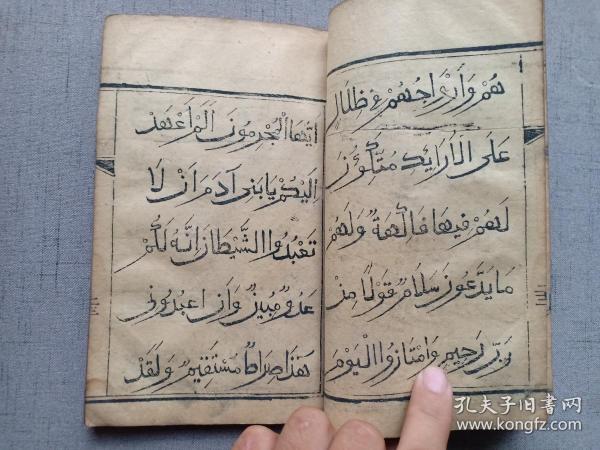 هُمْ وَأَزْوَاجُهُمْ فِي ظِلَالٍ
عَلَى الْأَرَائِكِ مُتَّكِؤُنَ
لَهُمْ فِيهَا فَاكِهَةٌ وَلَهُمْ
مَا يَدَّعُونَ سَلَامٌ قَوْلًا مِنْ
رَبٍّ رَحِيمٍ وَامْتَازُوا الْيَوْمَ
اَيُّهَا الْمُجْرِمُونَ اَلَمْ اَعْهَدْ
اِلَيْكُمْ يَا بَنِي آدَمَ اَنْ لَا
تَعْبُدُوا الشَّيْطَانَ اِنَّهُ لَكُمْ
عَدُوٌّ مُبِينٌ وَاَنِ اعْبُدُونِي
هَذَا صِرَاطٌ مُسْتَقِيمٌ وَلَقَدْ
孔夫子旧书网
www.kongfz.com